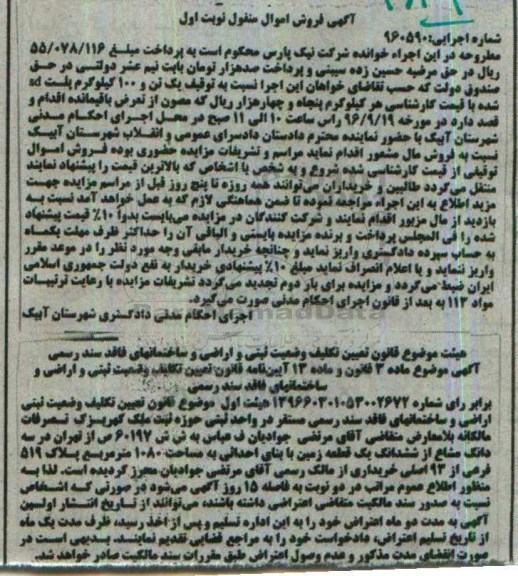 آگهی فروش اموال منقول نوبت اول
شماره اجرایی:۹۶۰۵۹۰
مطروحه در این اجراء خوانده شرکت نیک پارس محکوم است به پرداخت مبلغ ۵۵/۰۷۸/۱۱۶
ریال در حق مرضیه حسین زده سیبنی و پرداخت صدهزار تومان بابت نیم عشر دولتی در حق
صندوق دولت که حسب تقاضای خواهان این اجرا نسبت به توقیف یک تن و ۱۰۰ کیلوگرم پلت sd
شده با قیمت کارشناسی هر کیلوگرم پنجاه و چهارهزار ریال که مصون از تعرض باقیمانده اقدام و
قصد دارد در مورخه ۹۶/۹/۱۹ راس ساعت ۱۰ الی ۱۱ صبح در محل اجرای احکام مدنی
شهرستان آبیک با حضور نماینده محترم دادستان دادسرای عمومی و انقلاب شهرستان آبیک
نسبت به فروش مال مشعور اقدام نماید مراسم و تشریفات مزایده حضوری بوده فروش اموال
توقیفی از قیمت کارشناسی شده شروع و به شخص یا اشخاص که بالاترین قیمت را پیشنهاد نمایند
منتقل می‌گردد طالبین و خریداران می‌توانند همه روزه تا پنج روز قبل از مراسم مزایده جهت
مزید اطلاع به این اجراء مراجعه نموده تا ضمن هماهنگی لازم که به عمل خواهد آمد نسبت به
بازدید از مال مزبور اقدام نمایند و شرکت کنندگان در مزایده می‌بایست بدوا ۱۰٪ قیمت پیشنهاد
شده را فی المجلس پرداخت و برنده مزایده بایستی و الباقی آن را حداکثر ظرف مهلت یکماه
به حساب سپرده دادگستری واریز نماید و چنانچه خریدار مابقی وجه مورد نظر را در موعد مقرر
واریز ننماید و یا اعلام انصراف نماید مبلغ ۱۰٪ پیشنهادی خریدار به نفع دولت جمهوری اسلامی
ایران ضبط می‌گردد و مزایده برای بار دوم تجدید می‌گردد تشریفات مزایده با رعایت ترتیبات
مواد ۱۱۳ به بعد از قانون اجرای احکام مدنی صورت می‌گیرد.
اجرای احکام مدنی دادگستری شهرستان آبیک
هیئت موضوع قانون تعیین تکلیف وضعیت ثبتی و اراضی و ساختمانهای فاقد سند رسمی
آگهی موضوع ماده ۳ قانون و ماده ۱۳ آیین‌نامه قانون تعیین تکلیف وضعیت ثبتی و اراضی و
ساختمانهای فاقد سند رسمی
برابر رای شماره ۱۳۹۶۶۰۳۰۱۰۵۳۰۰۲۶۷۲ هیئت اول موضوع قانون تعیین تکلیف وضعیت ثبتی
اراضی و ساختمانهای فاقد سند رسمی مستقر در واحد ثبتی حوزه ثبت ملک کهریزک تصرفات
مالکانه بلامعارض متقاضی آقای مرتضی جوادیان ف عباس به ش ش ۶۰۱۹۷ ص از تهران در سه
دانگ مشاع از ششدانگ یک قطعه زمین با بنای احداثی به مساحت ۱۰۸۰ مترمربع پلاک ۵۱۹
فرعی از ۹۳ اصلی خریداری از مالک رسمی آقای مرتضی جوادیان محرز گردیده است. لذا به
منظور اطلاع عموم مراتب در دو نوبت به فاصله ۱۵ روز آگهی می‌شود در صورتی که اشخاص
نسبت به صدور سند مالکیت متقاضی اعتراضی داشته باشند، می‌توانند از تاریخ انتشار اولین
آگهی به مدت دو ماه اعتراض خود را به این اداره تسلیم و پس از اخذ رسید، ظرف مدت یک ماه
از تاریخ تسلیم اعتراض، دادخواست خود را به مراجع قضایی تقدیم نمایند. بدیهی است در
صورت انقضای مدت مذکور و عدم وصول اعتراض طبق مقررات سند مالکیت صادر خواهد شد.